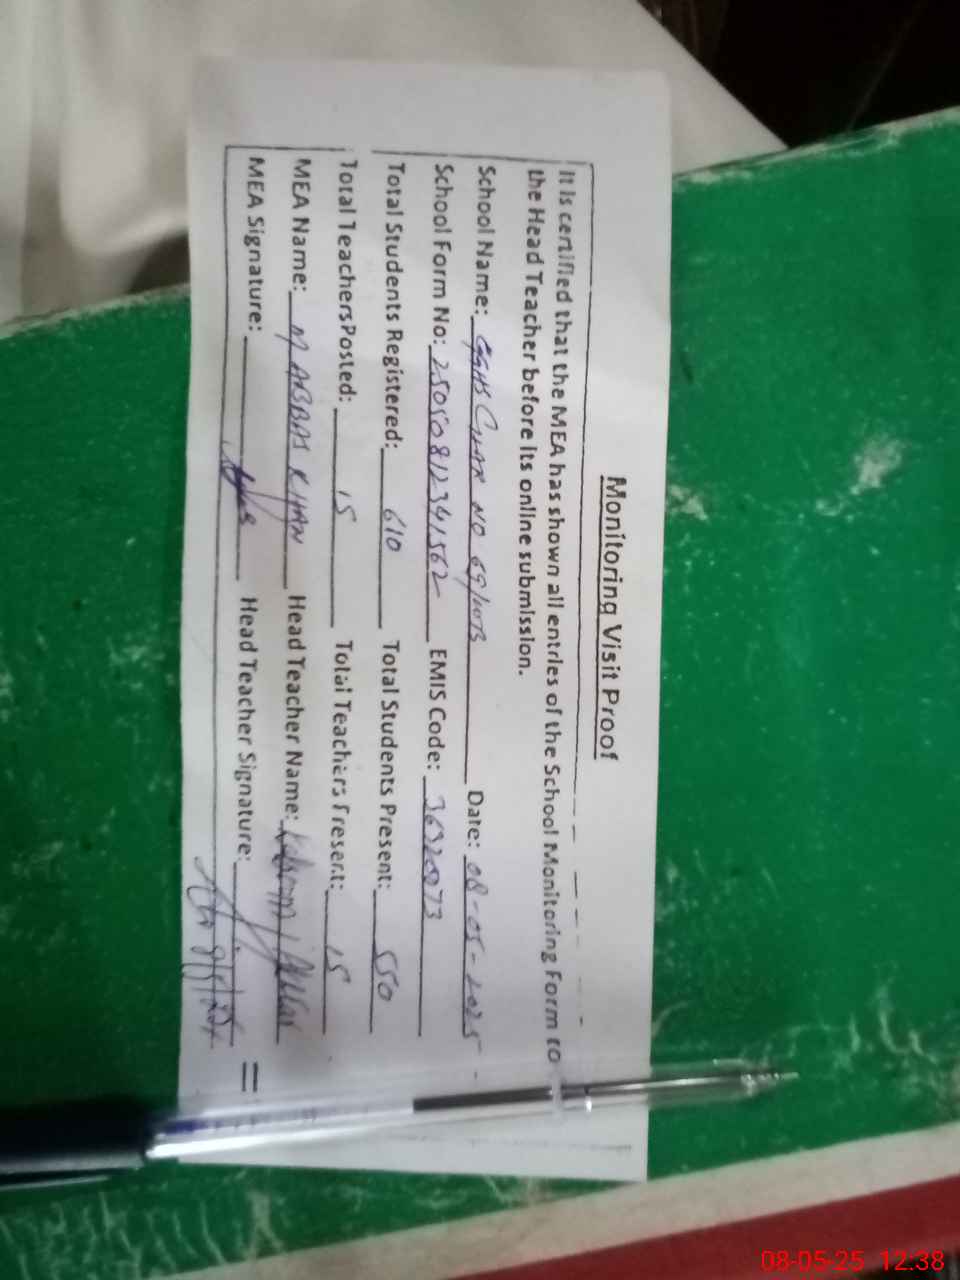 Monitoring Visit Proof
It is certified that the MEA has shown all entries of the School Monitoring Form to
the Head Teacher before its online submission.
School Name: GGHS CHAK NO 69/10TB Date: 08-05-2025
School Form No: 25050812341562 EMIS Code: 36320073
Total Students Registered: 610 Total Students Present: 550
Total TeachersPosted: 15 Total Teachers Present: 15
MEA Name: M ABBAS KHAN Head Teacher Name:
MEA Signature: Head Teacher Signature:
08-05-25 12:38